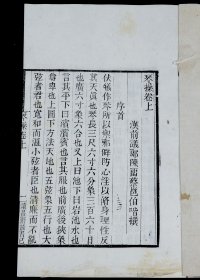 琴操卷上
漢前議郎陳留蔡邕伯喈撰
序首
伏犧作琴所以御邪僻防心淫以脩身理性反
其天眞也琴長三尺六寸六分象三百六十日
也廣六寸象六合也文上曰池下曰岩池水也
言其平下曰濱濱賓也言其服也前廣後狹象
尊卑也上圓下方法天地也五弦象五行也大
弦者君也寬和而溫小弦者臣也淸廉而不亂
琴操卷上